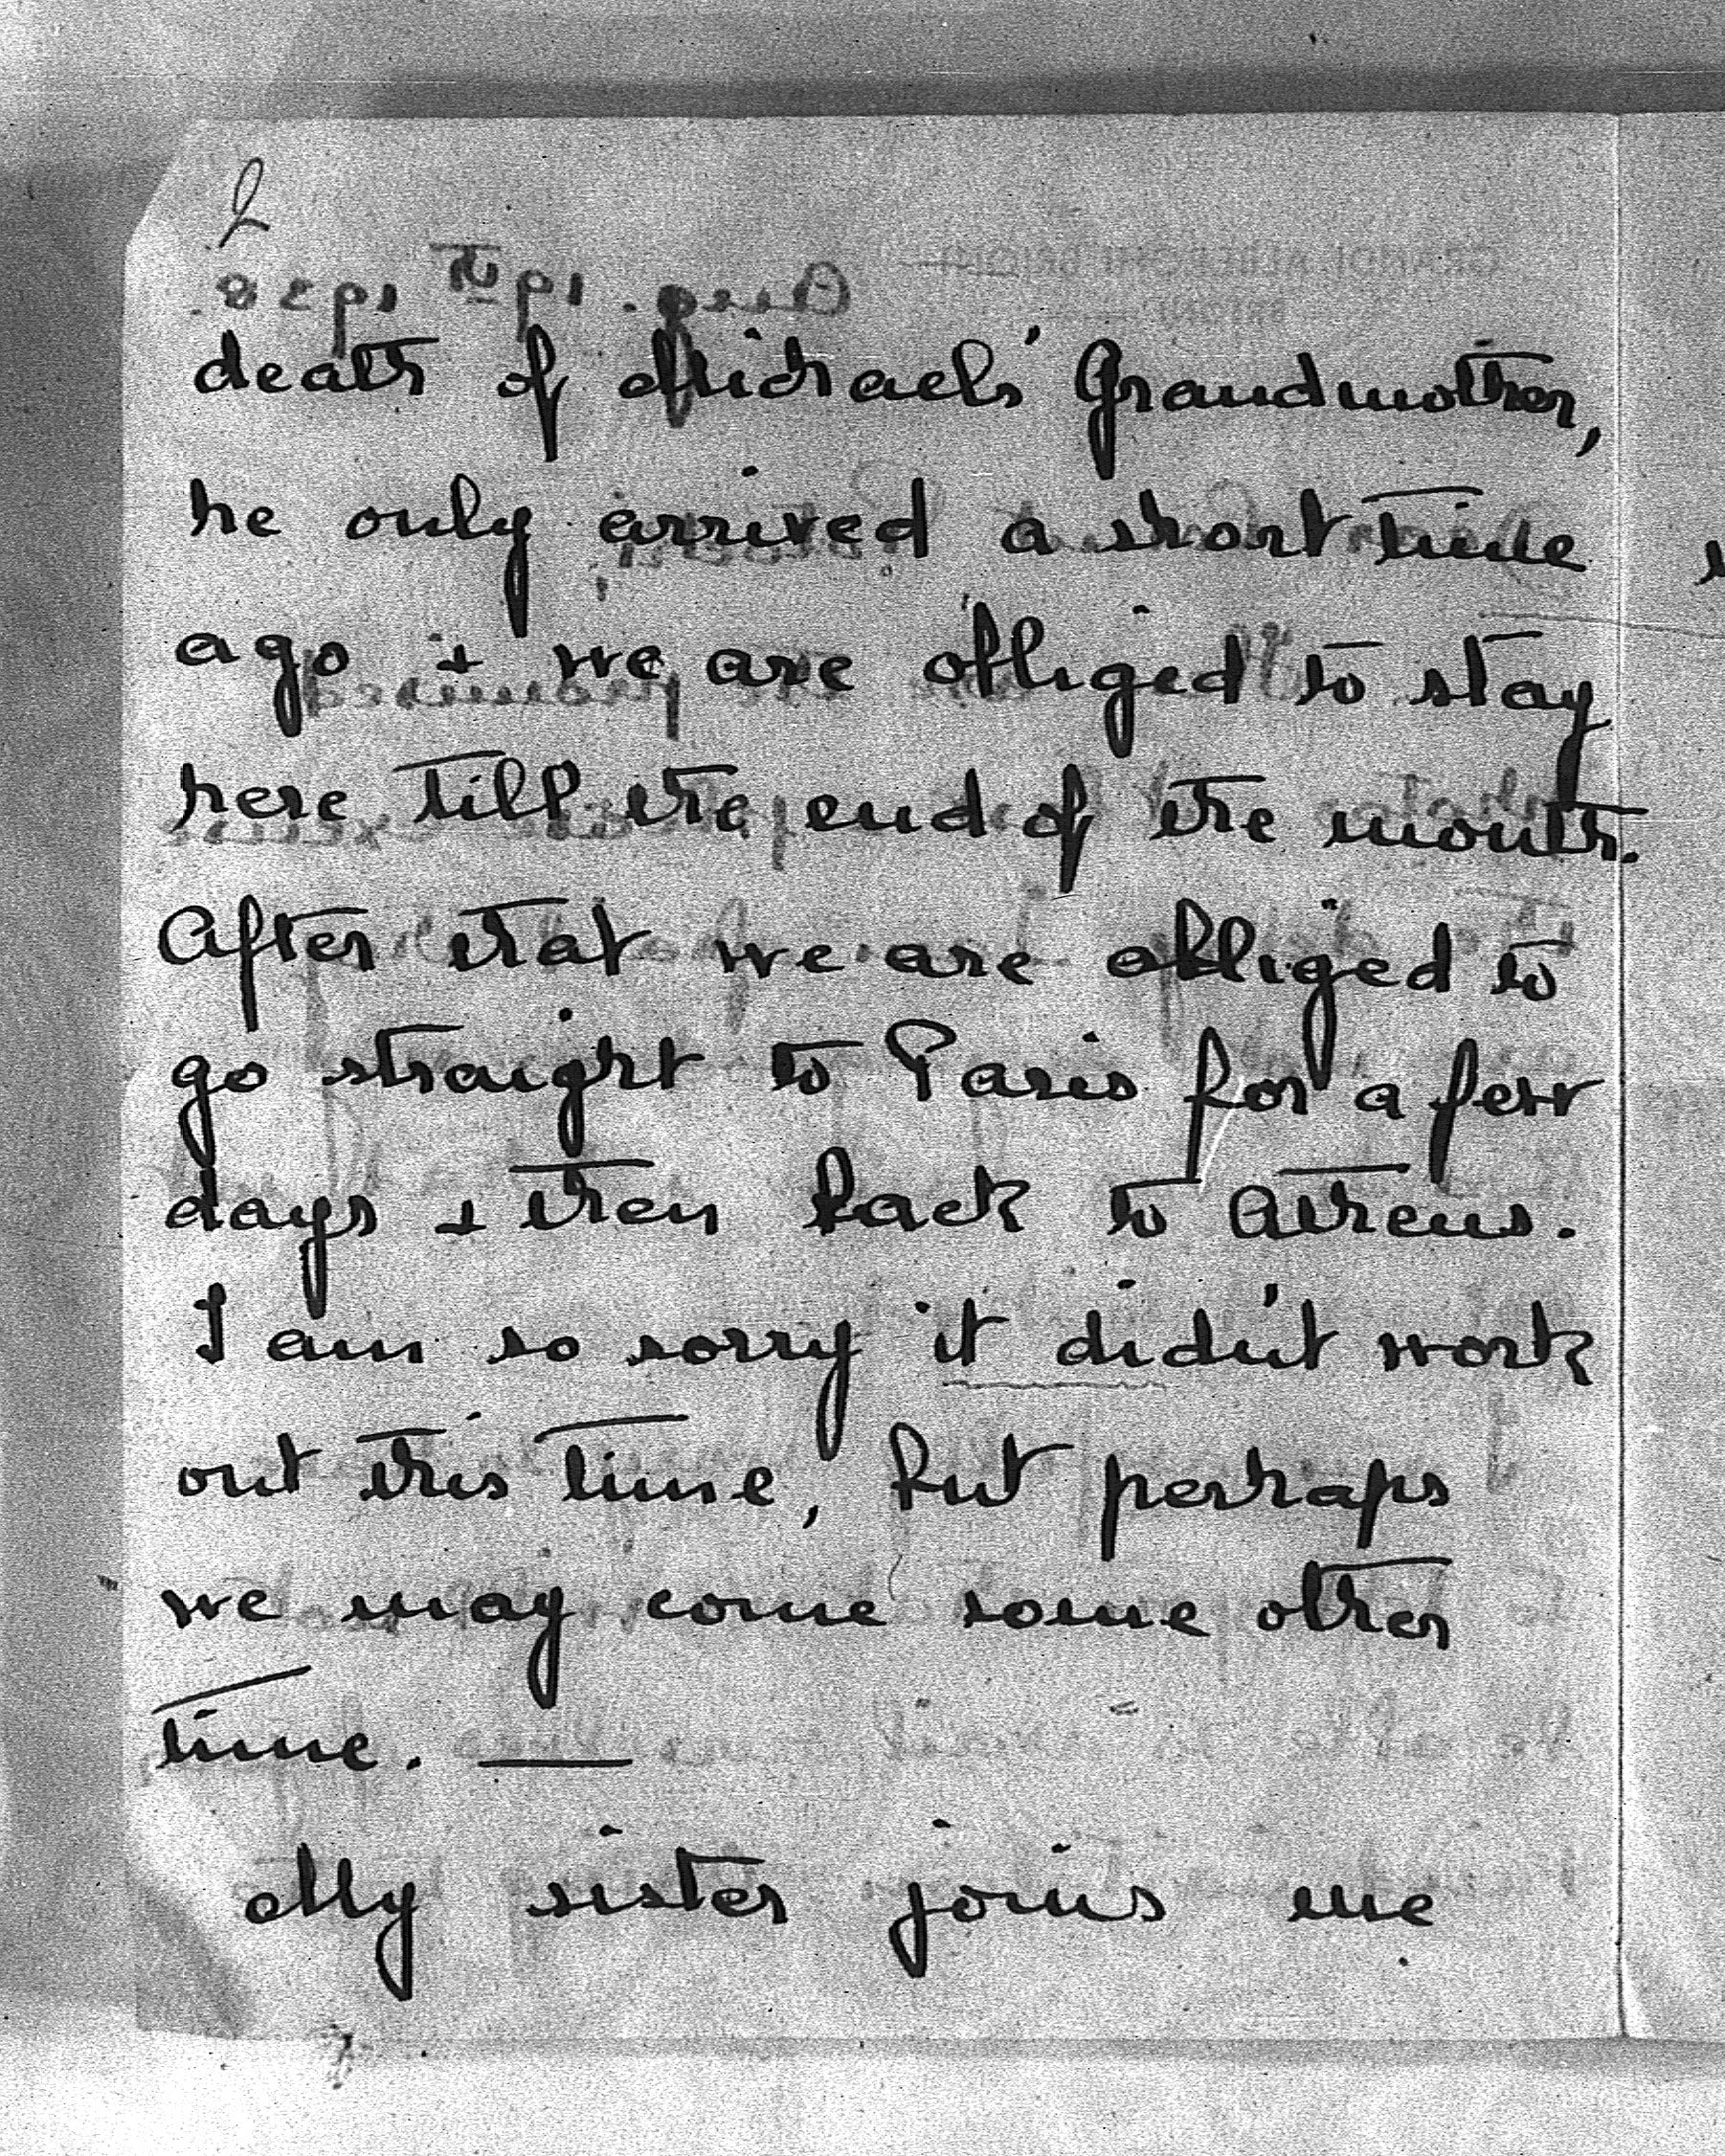 2
death of Michaels' Grandmother,
he only arrived a short time
ago + we are obliged to stay
here till the end of the month.
After that we are obliged to
go straight to Paris for a few
days + then back to Athens.
I am so sorry it didn't work
out this time, but perhaps
we may come some other
time. —
My sister joins me